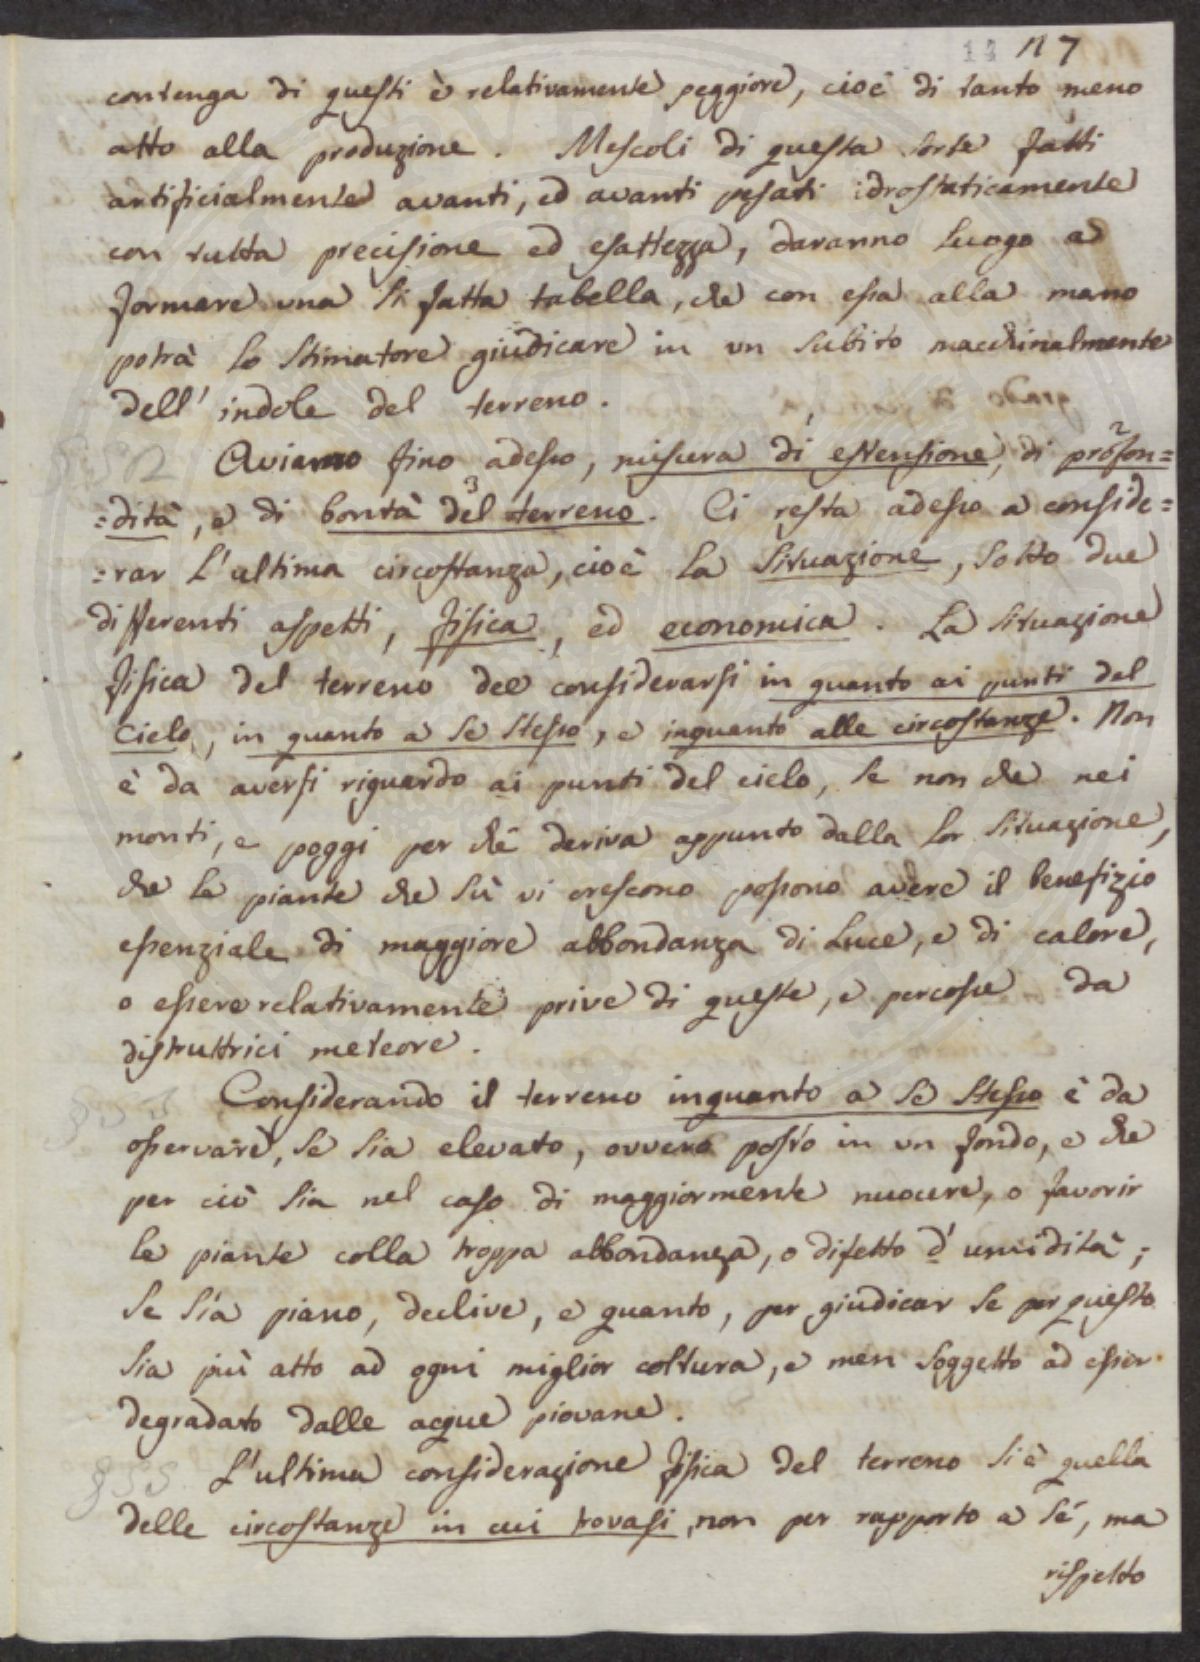 13 117
contenga di questi è relativamente peggiore, cioè di tanto meno
atto alla produzione. Mescoli di questa sorte fatti
artificialmente avanti, ed avanti pesati idrostaticamente
con tutta precisione ed esattezza, daranno luogo a
formare una si fatta tabella, che con essa alla mano
potrà lo stimatore giudicare in un subito macchinalmente
dell' indole del terreno.
Aviamo fino adesso, misura di 1 estensione, di 2 profon=
=dità, e di bontà 3 del terreno. Ci resta adesso a conside=
=rar l'ultima circostanza, cioè la situazione, sotto due
differenti aspetti, fisica, ed economica. La situazione
fisica del terreno dee considerarsi in quanto ai punti del
Cielo, in quanto a se stesso, e inquanto alle circostanze. Non
è da aversi riguardo ai punti del cielo, se non che nei
monti, e poggi per chè deriva appunto dalla lor situazione,
che le piante che sù vi crescono possono avere il benefizio
essenziale di maggiore abbondanza di Luce, e di calore,
o essere relativamente prive di queste, e percosse da
distruttrici meteore.
Considerando il terreno inquanto a se stesso è da
osservare, se sia elevato, ovvero posto in un fondo, e che
per ciò sia nel caso di maggiormente nuocere, o favorir
le piante colla troppa abbondanza, o difetto d' umidità;
se sia piano, declive, e quanto, per giudicar se per questo
sia più atto ad ogni miglior coltura, e men soggetto ad esser
degradato dalle acque piovane.
§55 L'ultima considerazione fisica del terreno si è quella
delle circostanze in cui trovasi, non per rapporto a sé, ma
rispetto